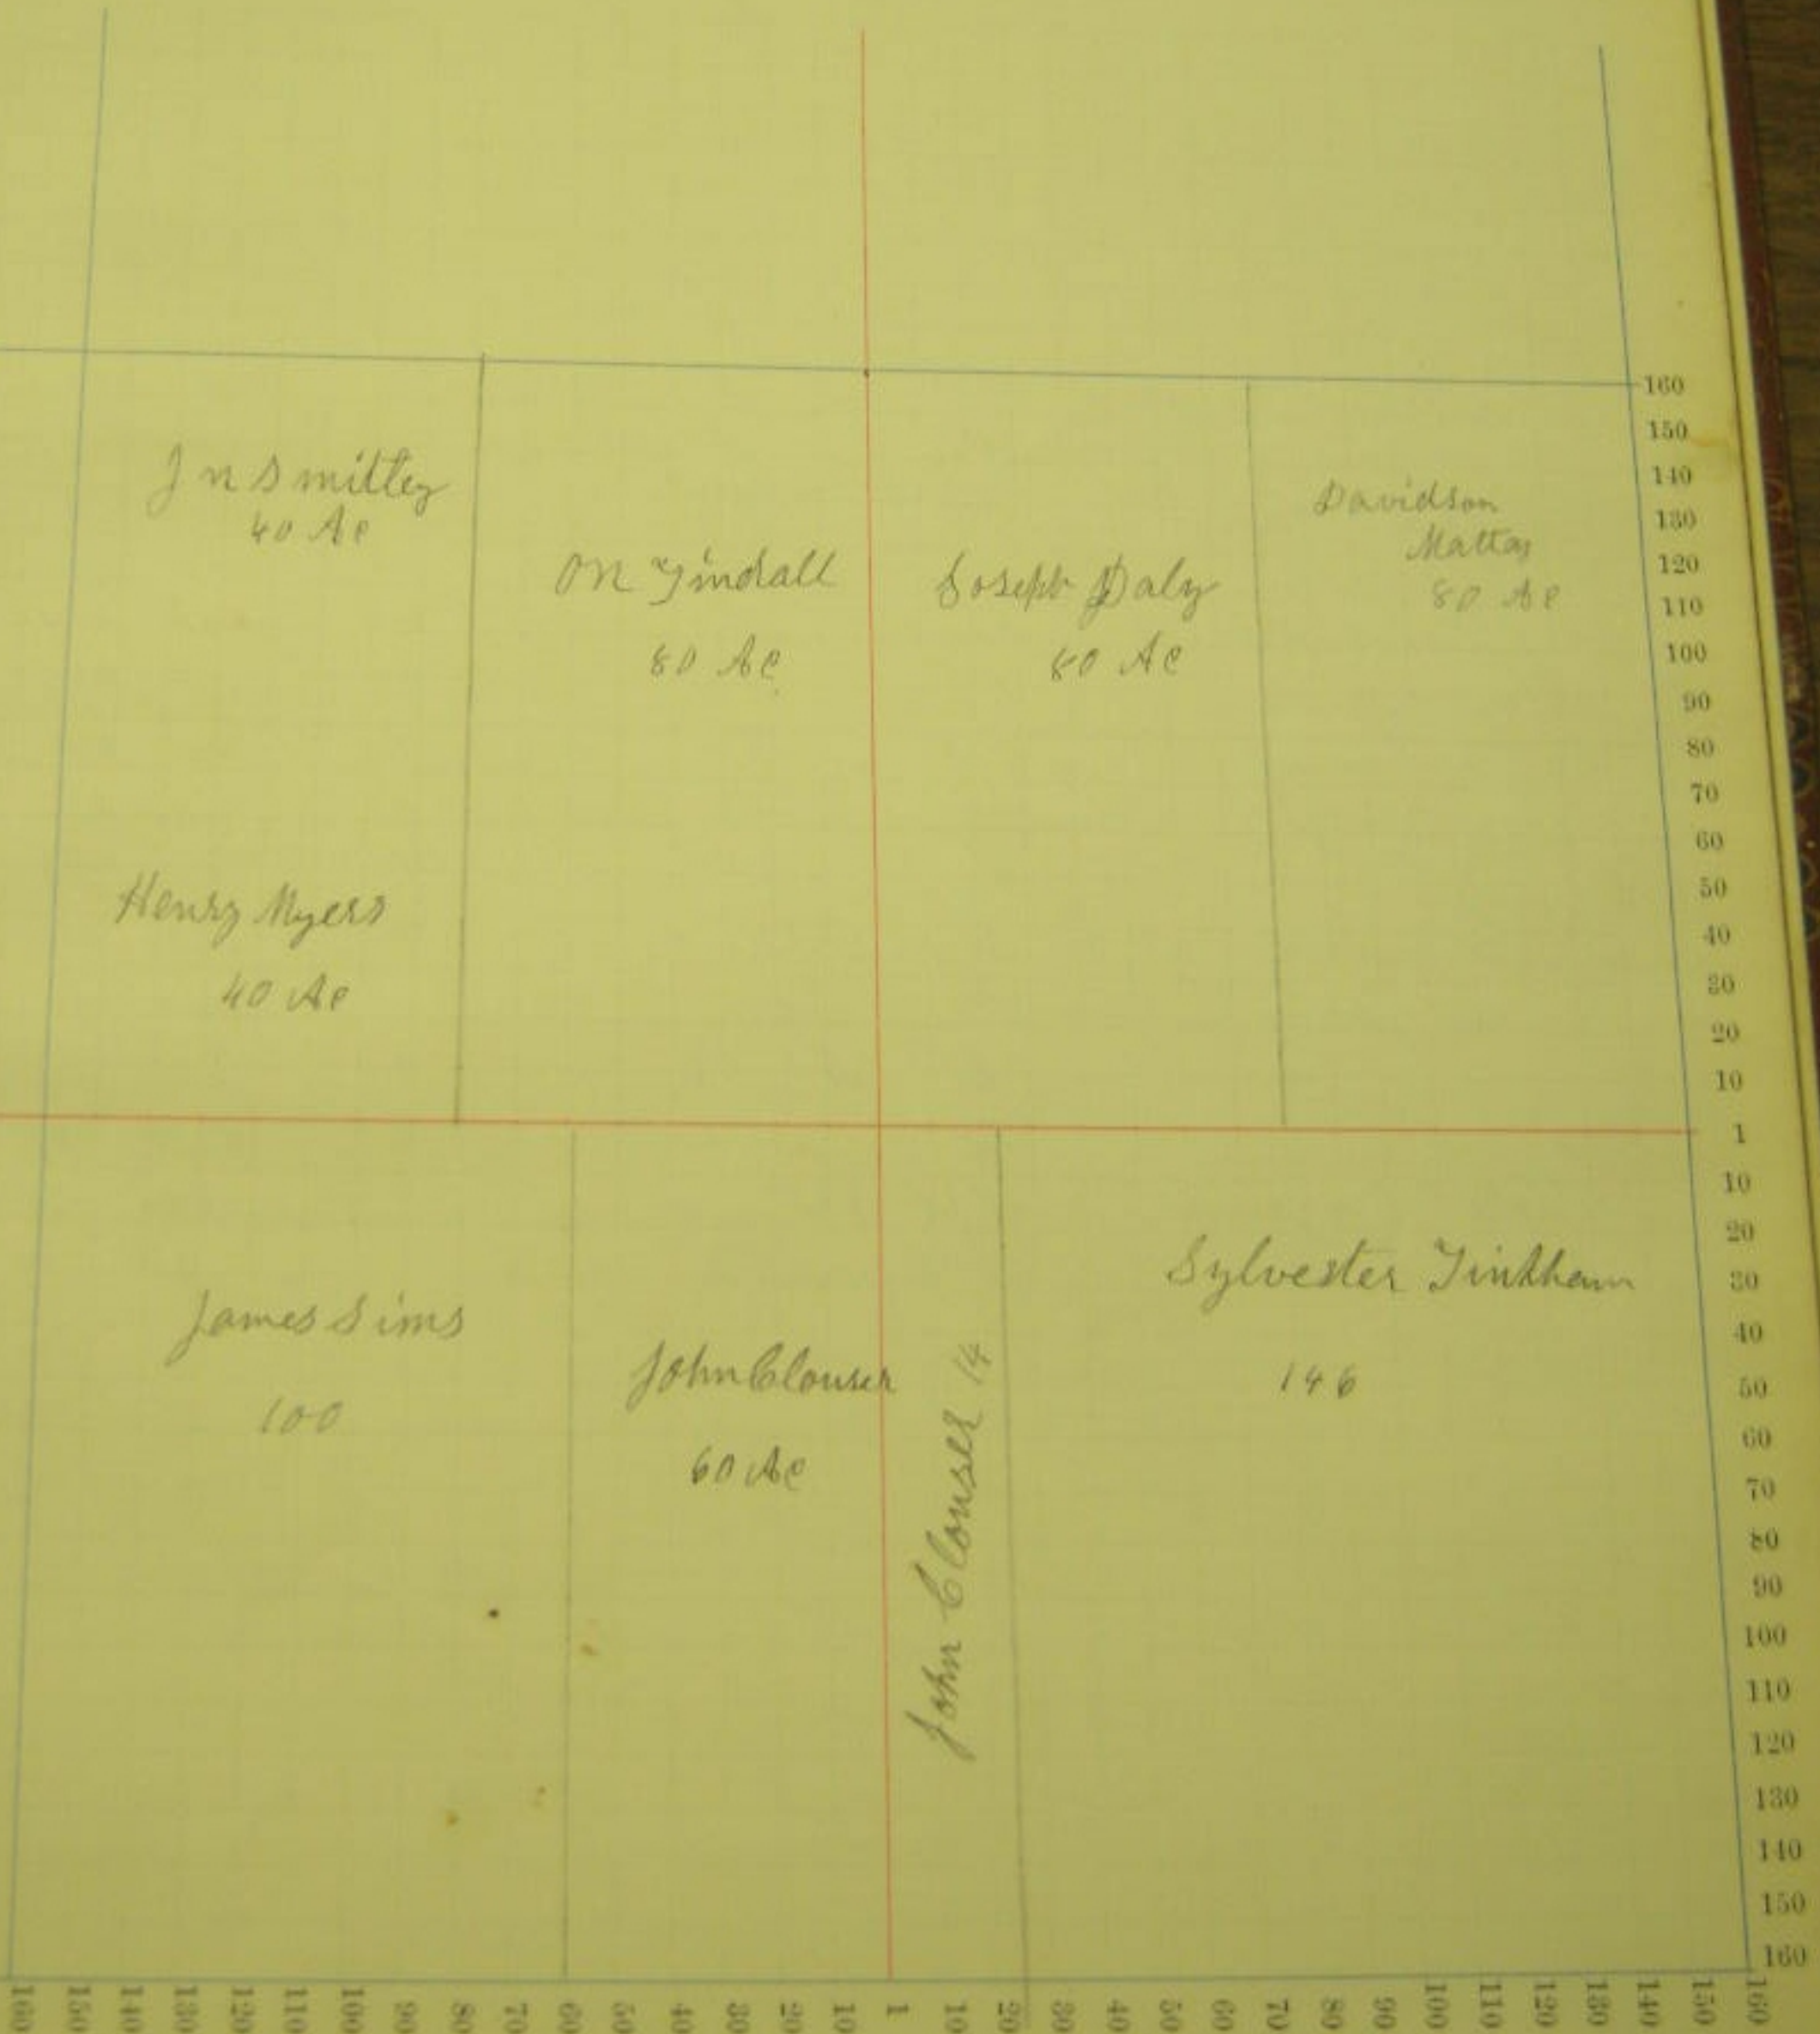 J n Smittey
40 Ac
Henry Myers
40 Ac
O N Tindall
80 Ac
Joseph Daly
80 Ac
Davidson
80 Ac
James Sims
100
John Clouser
60 Ac
John Clouser 14
Sylvester Tinkham
146
160
150
140
130
120
110
100
90
80
70
60
50
40
30
20
10
1
10
20
30
40
50
60
70
80
90
100
110
120
130
140
150
160
160 150 140 130 120 110 100 90 80 70 60 50 40 30 20 10 1 10 20 30 40 50 60 70 80 90 100 110 120 130 140 150 160